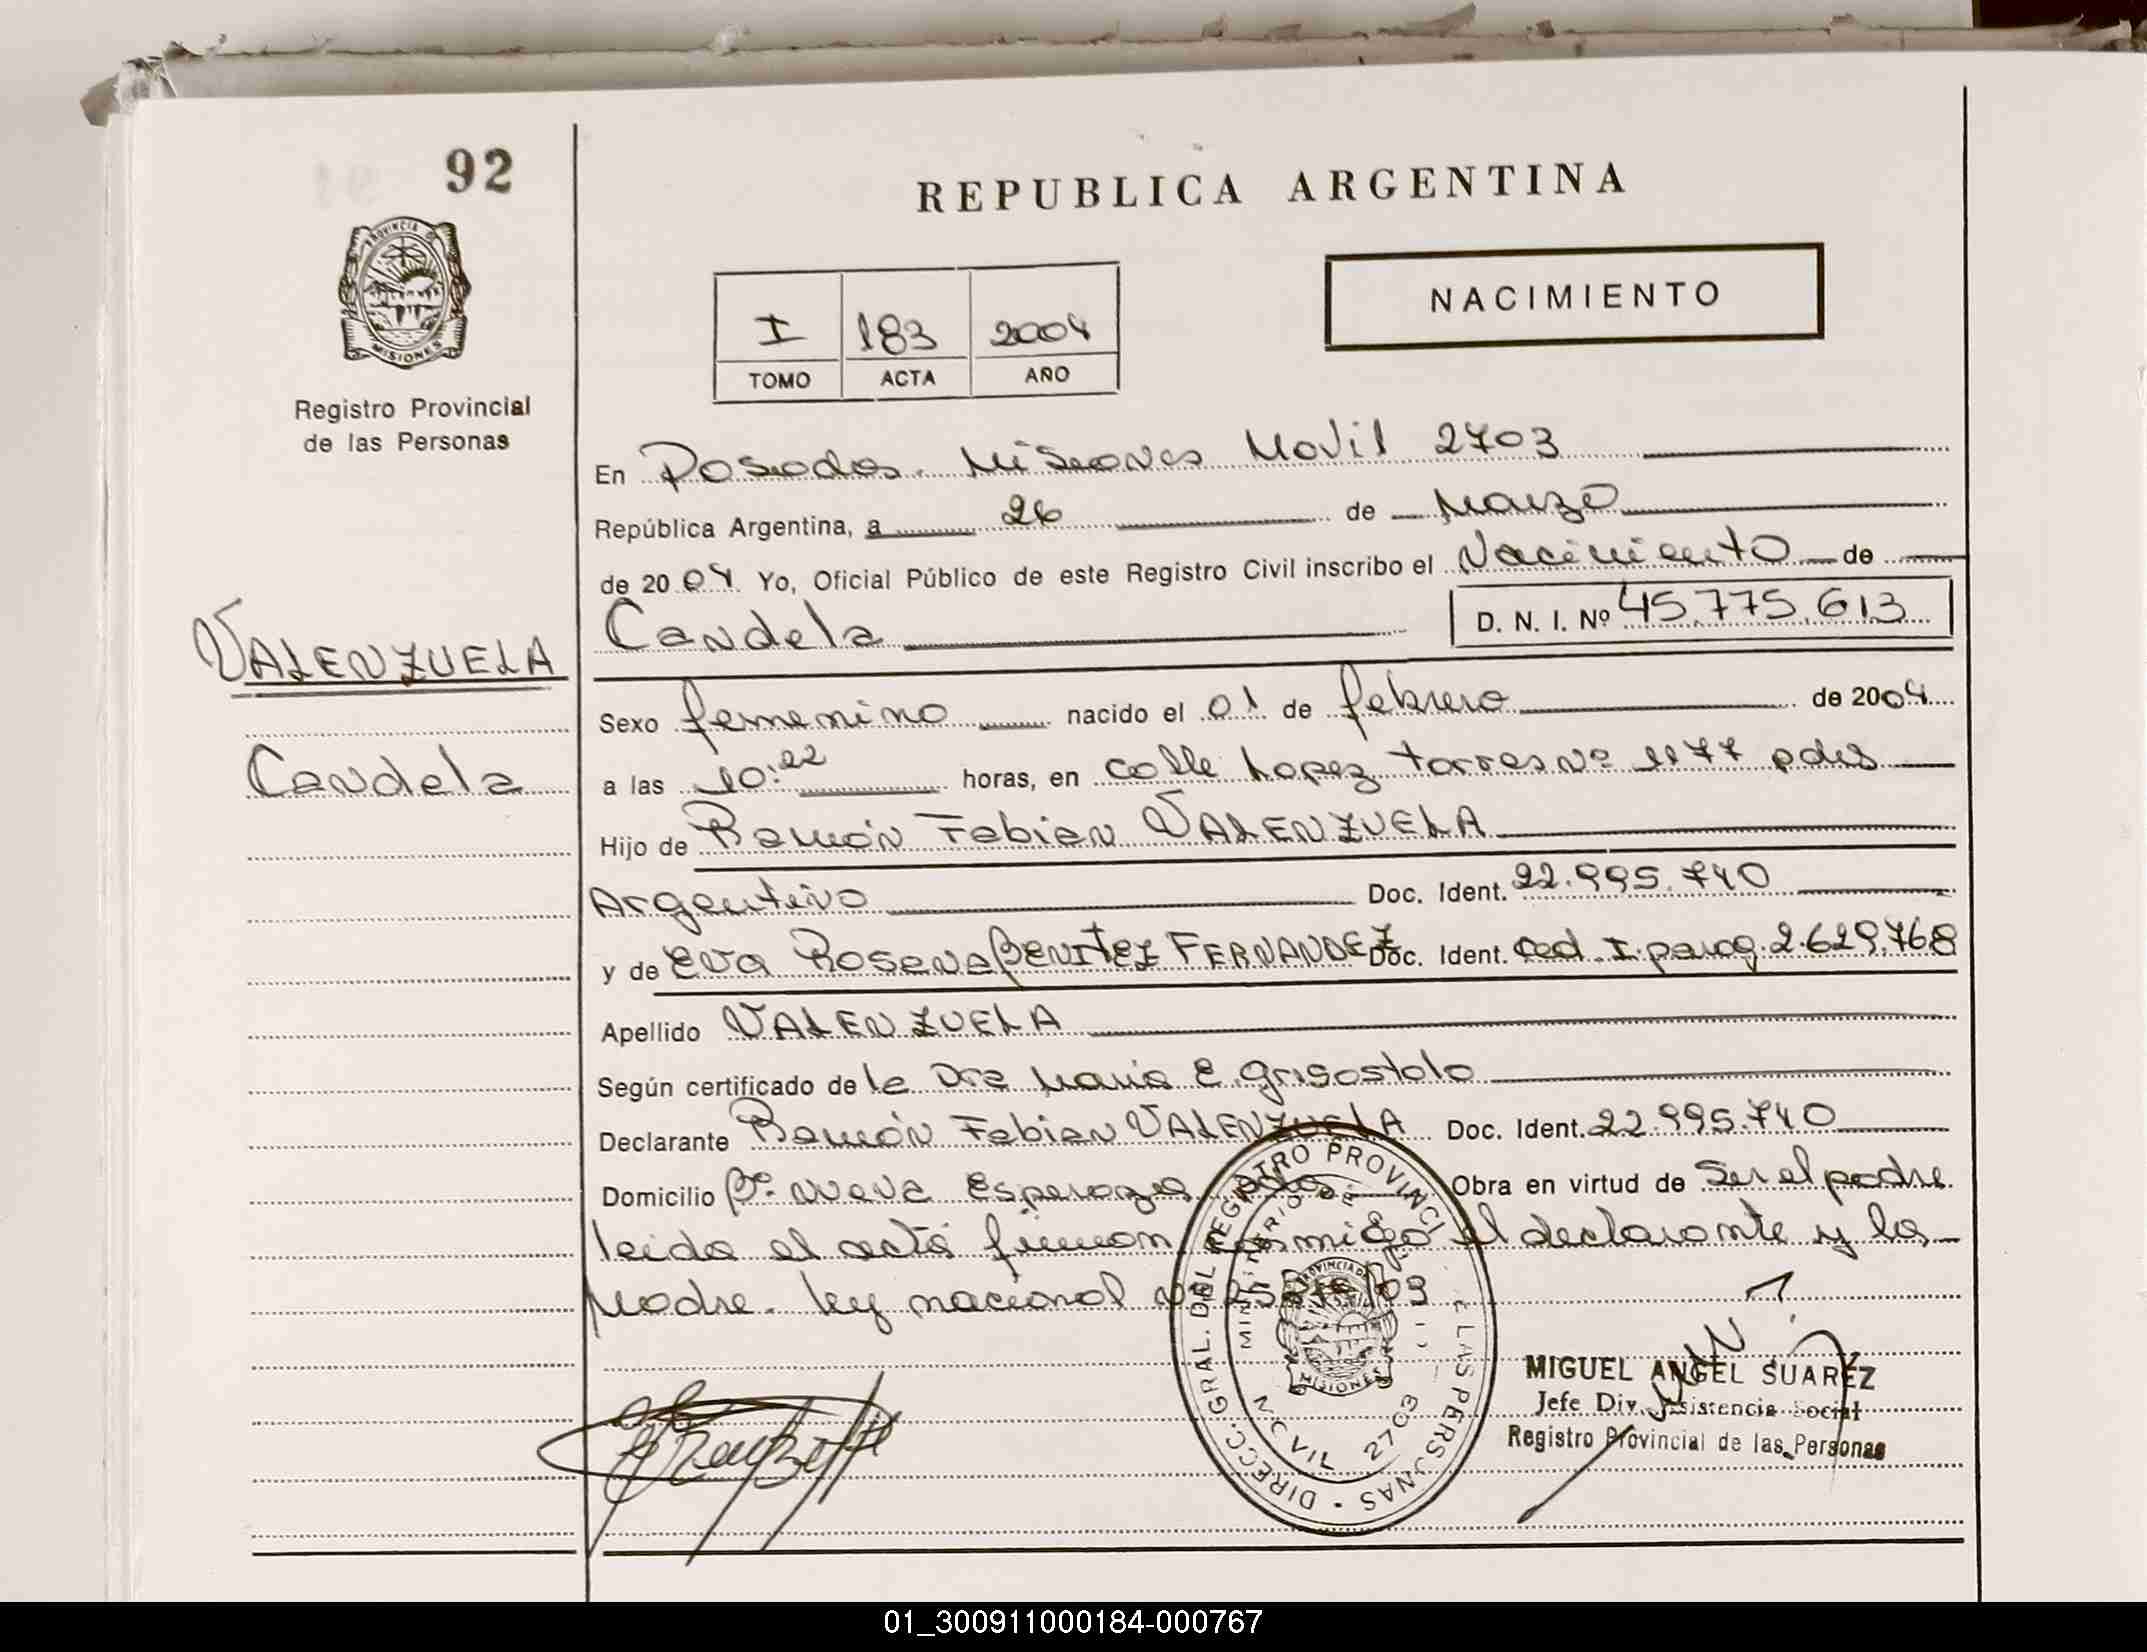 92
REPUBLICA ARGENTINA
NACIMIENTO
I 183 2004
TOMO ACTA AÑO
PROVINCIA DE MISIONES
Registro Provincial
de las Personas
En Posadas. Misiones Movil 2703
República Argentina, a 26 de Marzo
de 2004 Yo, Oficial Público de este Registro Civil inscribo el Nacimiento de
Candela D. N. I. Nº 45.775.613
VALENZUELA
Candela
Sexo femenino nacido el 01 de febrero de 2004
a las 10:22 horas, en calle Lopez torres Nº 1177 pdas
Hijo de Ramón Fabian VALENZUELA
Argentino Doc. Ident. 22.995.740
y de Eva Rosana BENITEZ FERNANDEZ Doc. Ident. Ced. I. parag. 2.629.768
Apellido VALENZUELA
Según certificado de la Dra Maria E. Grisostolo
Declarante Ramón Fabian VALENZUELA Doc. Ident. 22.995.740
Domicilio Bº. Nueva Esperanza pdas Obra en virtud de Ser el padre
leida el acta firman conmigo el declarante y la
Madre. Ley nacional
DIRECC. GRAL. DEL REGISTRO PROVINCIAL DE LAS PERSONAS
MINISTERIO DE
MOVIL 2703
PROVINCIA DE MISIONES
MIGUEL ANGEL SUAREZ
Jefe Div. Asistencia Social
Registro Provincial de las Personas
01_300911000184-000767